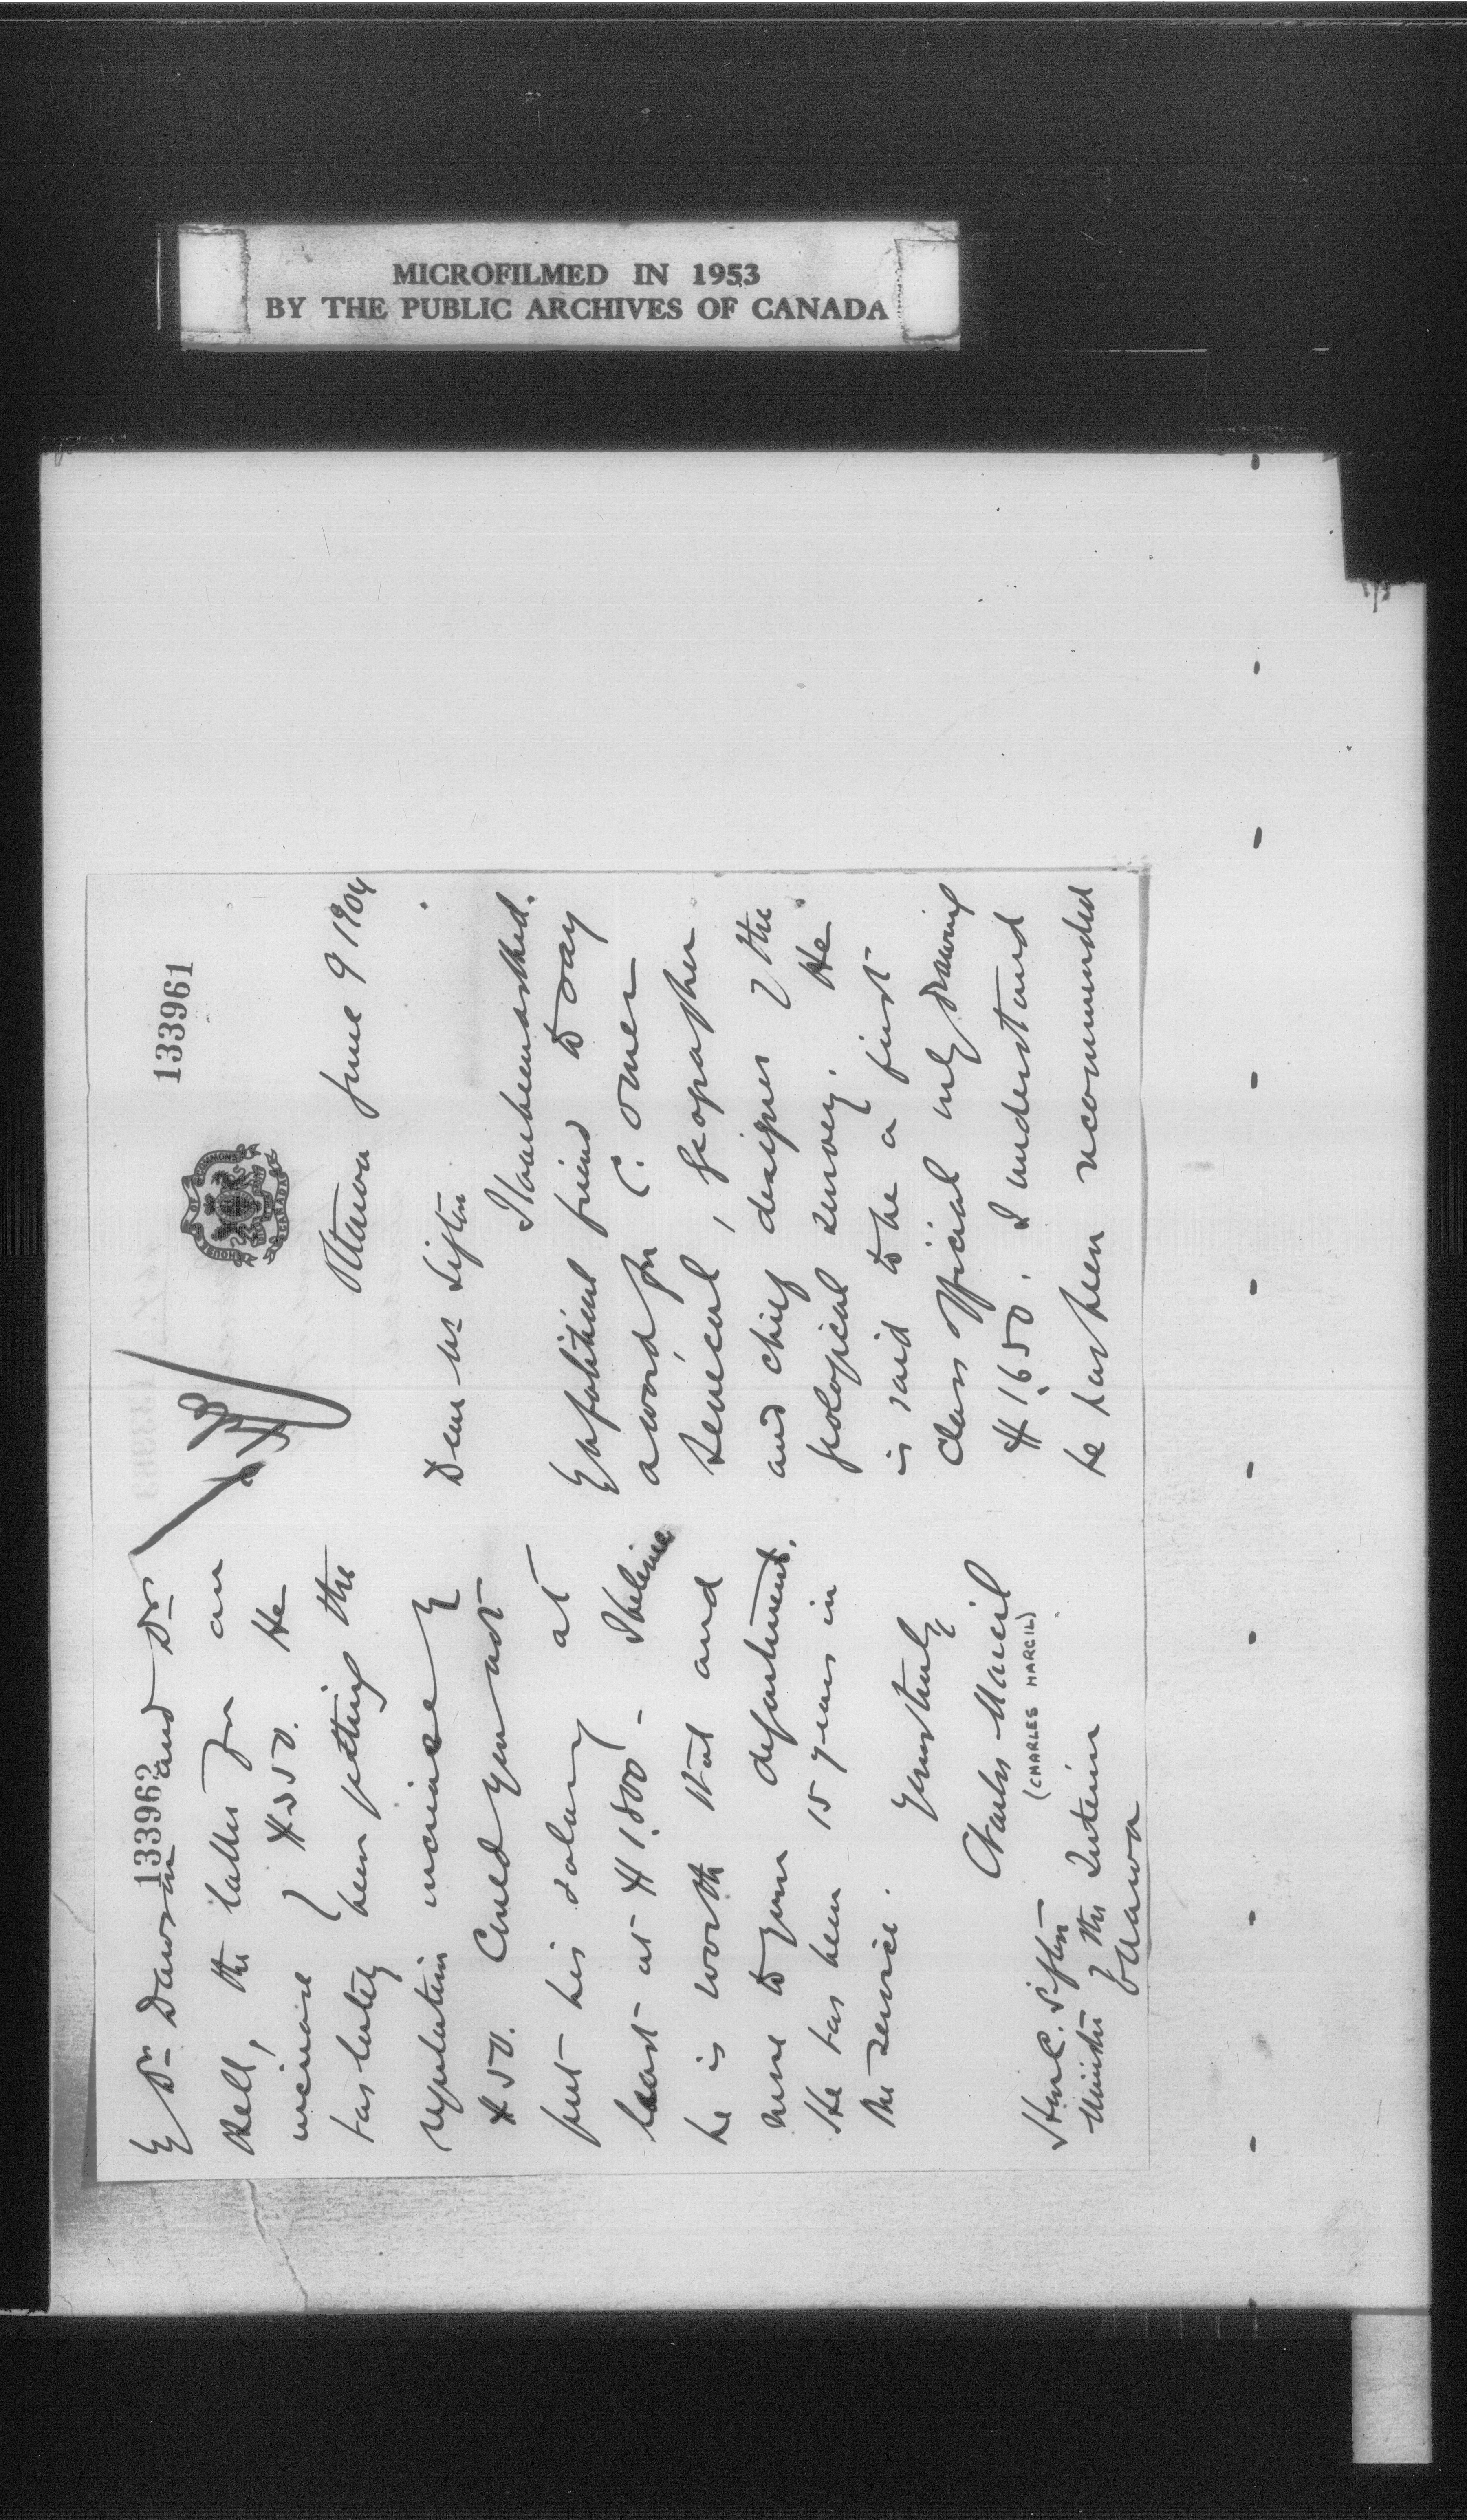 MICROFILMED IN 1953
BY THE PUBLIC ARCHIVES OF CANADA
133961
HOUSE OF COMMONS
CANADA
Ottawa June 9 1904
Dear Mr Sifton
I have been asked
by a political friend to say
a word for C. Omer
Senécal, geographer
and chief designer of the
geological survey. He
is said to be a first
class official only drawing
$1650. I understand
he has been recommended
133962
by Dr Dawson and Dr
Bell, the latter for an
increase of $350. He
has lately been getting the
regulation increase of
$50. Could you not
put his salary at
least at $1,800 - I believe
he is worth that and
more to your department.
He has been 15 years in
the service.
Yours truly
Charles Marcil
(CHARLES MARCIL)
Hon C. Sifton
Minister of the Interior
Ottawa